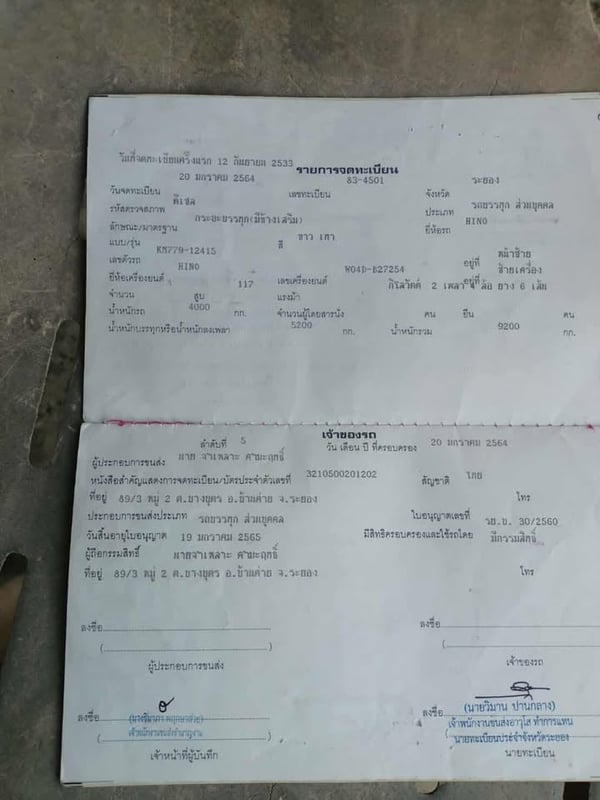 วันที่จดทะเบียนครั้งแรก 12 กันยายน 2533
รายการจดทะเบียน
วันจดทะเบียน 20 มกราคม 2564 เลขทะเบียน 83-4501 จังหวัด ระยอง
รหัสตรวจสภาพ ดีเซล ประเภท รถบรรทุก ส่วนบุคคล
ลักษณะ/มาตรฐาน กระบะบรรทุก(มีข้างเสริม) ยี่ห้อรถ HINO
แบบ/รุ่น สี ขาว เทา
เลขตัวรถ KM779-12415 อยู่ที่ หน้าซ้าย
ยี่ห้อเครื่องยนต์ HINO เลขเครื่องยนต์ W04D-B27254 อยู่ที่ ซ้ายเครื่อง
จำนวน สูบ 117 แรงม้า กิโลวัตต์ 2 เพลา 4 ล้อ ยาง 6 เส้น
น้ำหนักรถ 4000 กก. จำนวนผู้โดยสารนั่ง คน ยืน คน
น้ำหนักบรรทุกหรือน้ำหนักลงเพลา 5200 กก. น้ำหนักรวม 9200 กก.
เจ้าของรถ
ลำดับที่ 5 วัน เดือน ปี ที่ครอบครอง 20 มกราคม 2564
ผู้ประกอบการขนส่ง นาย
หนังสือสำคัญแสดงการจดทะเบียน/บัตรประจำตัวเลขที่ 3210500201202 สัญชาติ ไทย
ที่อยู่ 89/3 หมู่ 2 ต.บางบุตร อ.บ้านค่าย จ.ระยอง โทร
ประกอบการขนส่งประเภท รถบรรทุก ส่วนบุคคล ใบอนุญาตเลขที่ รย.บ. 30/2560
วันสิ้นอายุใบอนุญาต 19 มกราคม 2565 มีสิทธิครอบครองและใช้รถโดย มีกรรมสิทธิ์
ผู้ถือกรรมสิทธิ์
ที่อยู่ 89/3 หมู่ 2 ต.บางบุตร อ.บ้านค่าย จ.ระยอง โทร
ลงชื่อ ลงชื่อ
( ) ( )
ผู้ประกอบการขนส่ง เจ้าของรถ
ลงชื่อ ลงชื่อ (นายวิมาน ปานกลาง)
เจ้าพนักงานขนส่งอาวุโส ทำการแทน
นายทะเบียนประจำจังหวัดระยอง
เจ้าหน้าที่ผู้บันทึก นายทะเบียน